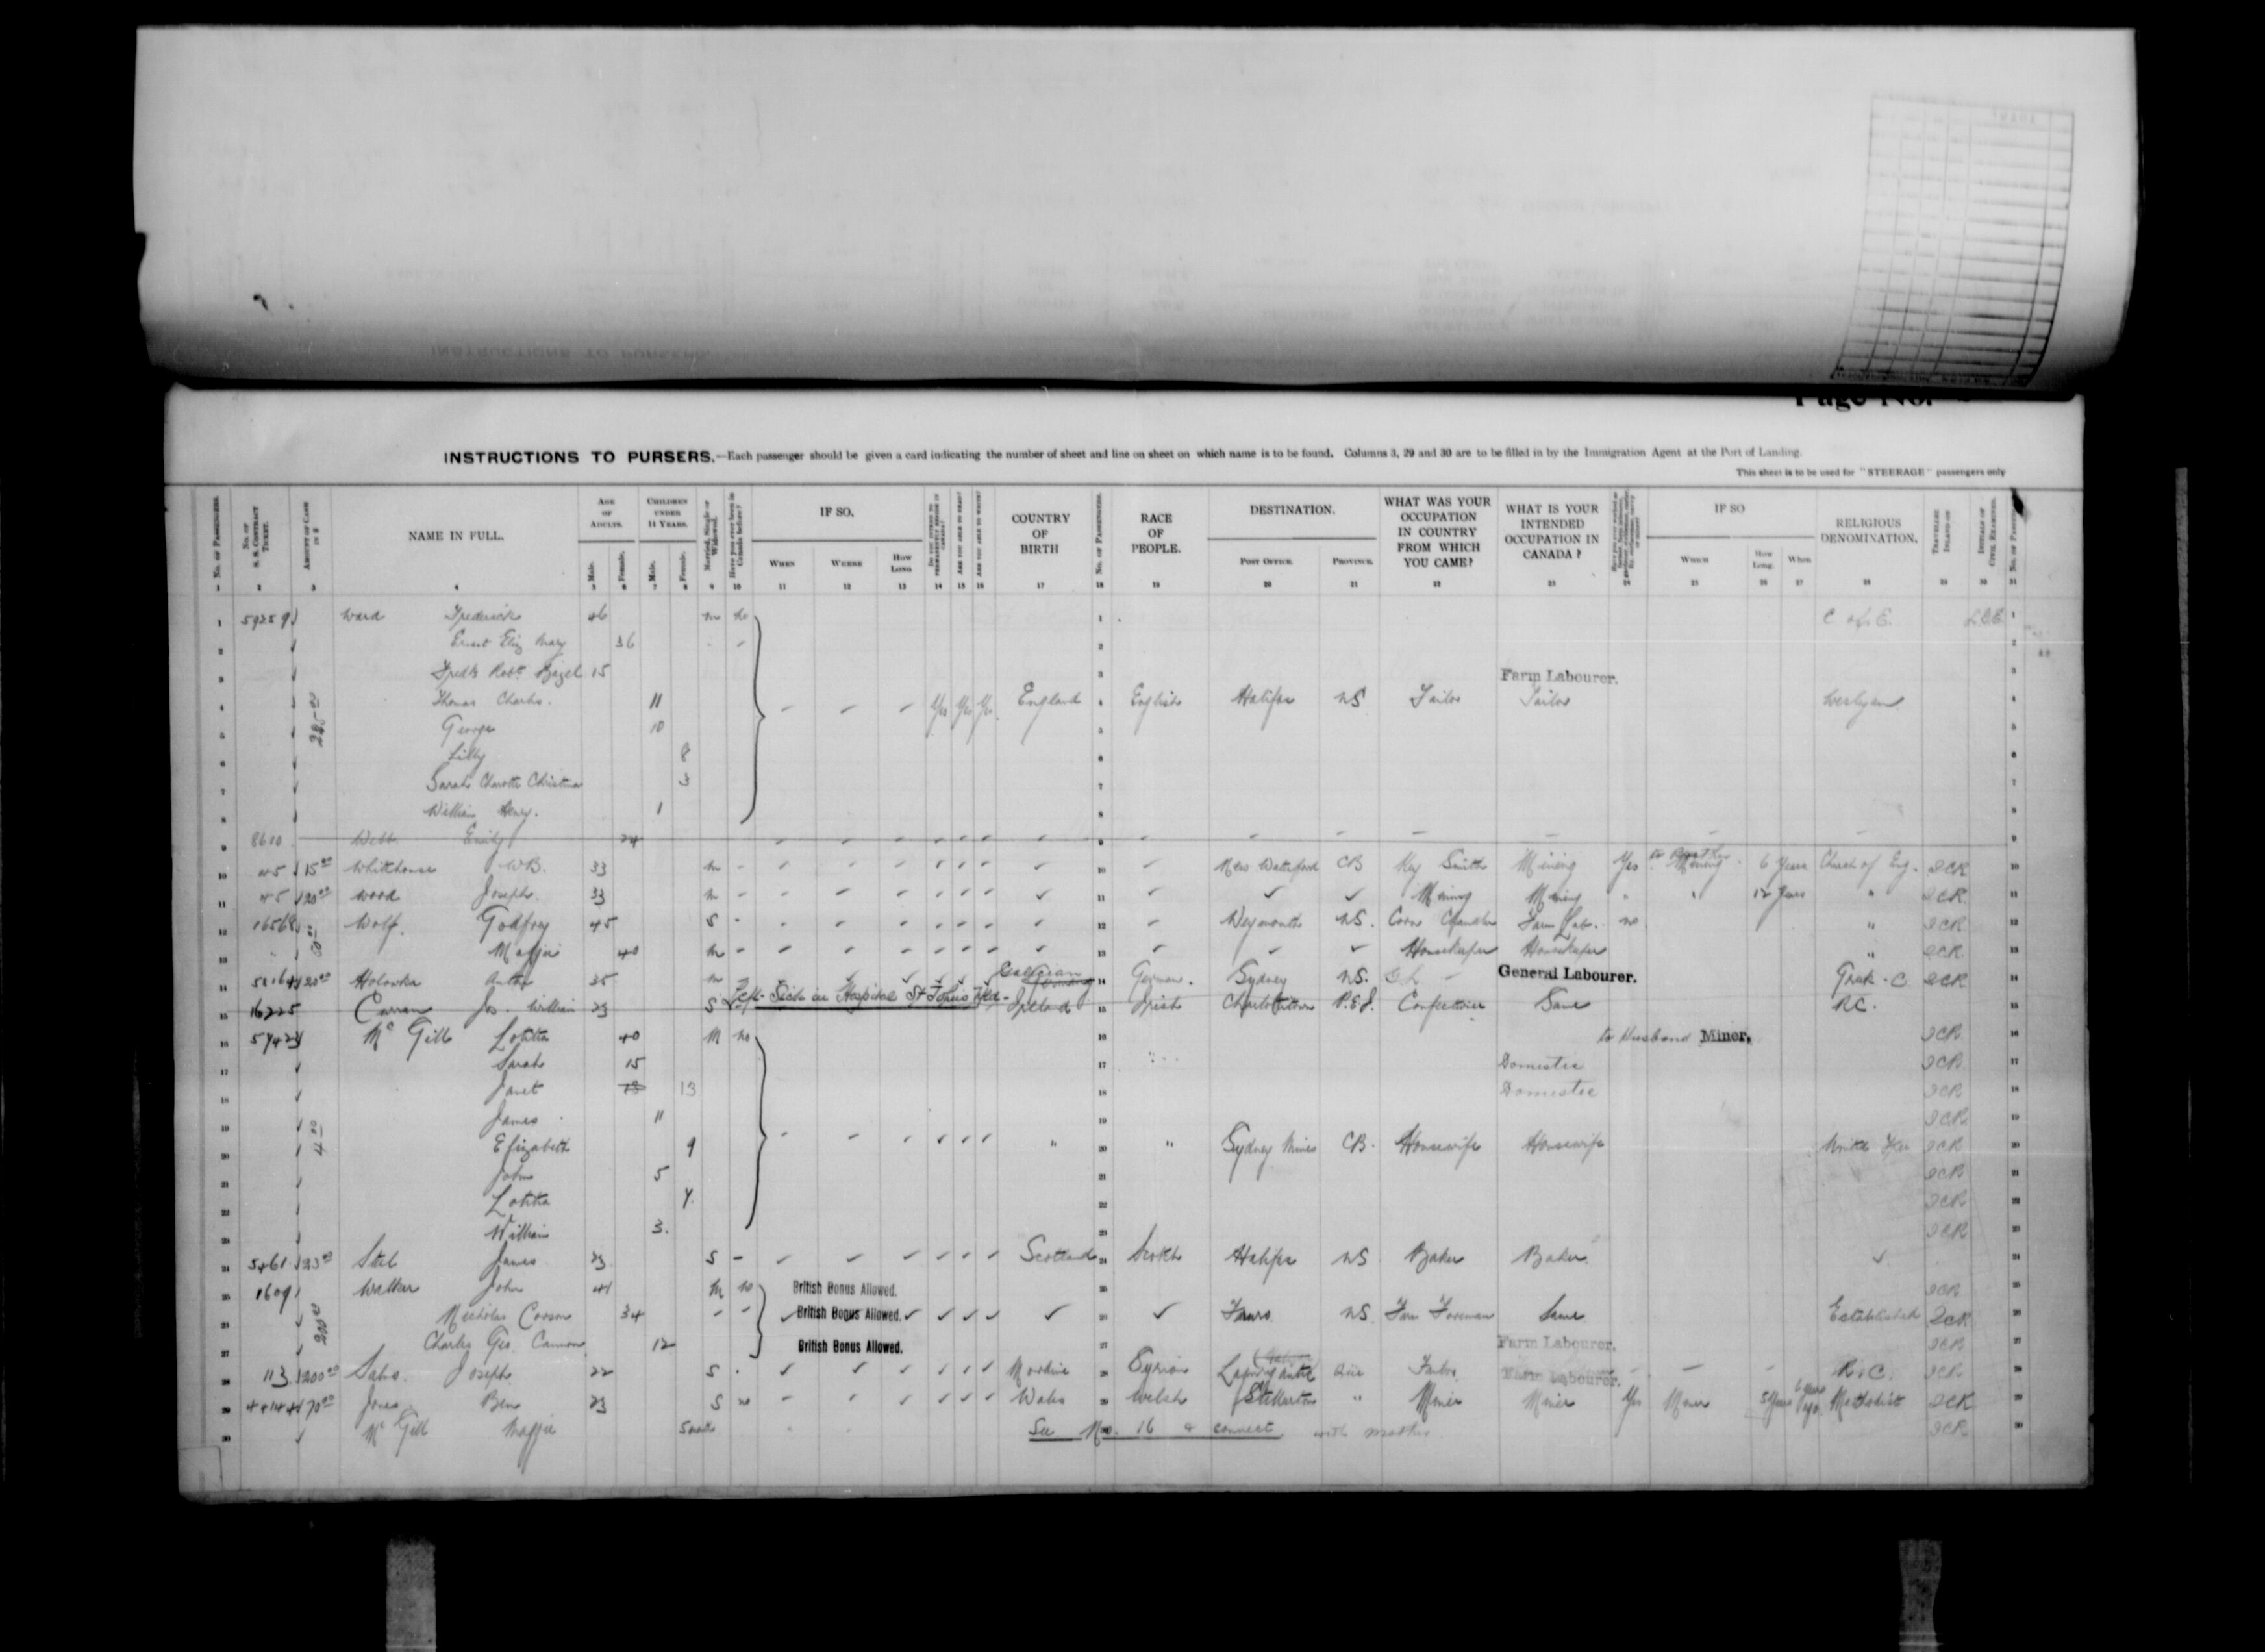 Page No.
INSTRUCTIONS TO PURSERS.—Each passenger should be given a card indicating the number of sheet and line on sheet on which name is to be found. Columns 3, 29 and 30 are to be filled in by the Immigration Agent at the Port of Landing.
This sheet is to be used for "STEERAGE" passengers only
No. of Passengers. No. of S. S. Contract Ticket. Amount of Cash in $ NAME IN FULL. Age of Adults. Male. Female. Children under 14 Years. Male. Female. Married, Single or Widowed. Have you ever been in Canada before? IF SO. When Where How Long Are you able to read? Are you able to write? COUNTRY OF BIRTH No. of Passengers. RACE OF PEOPLE. DESTINATION. Post Office. Province. WHAT WAS YOUR OCCUPATION IN COUNTRY FROM WHICH YOU CAME? WHAT IS YOUR INTENDED OCCUPATION IN CANADA? IF SO Which How Long When RELIGIOUS DENOMINATION. Travelling Inland on Initials of Civil Examiner. No. of Passengers
1 Ward Frederick 46 m no 1 C of E. 1
2 Eliz Mary 36 2 2
3 15 3 Farm Labourer. 3
4 Thomas Charles. 11 Yes Yes Yes England 4 English Halifax NS Tailor Tailor Wesleyan 4
5 George 10 5 5
6 Lilly 8 6 6
7 Sarah Christina 3 7 7
8 William Henry. 1 8 8
9 8610 Webb Emily 24 9
10 45 15 00 Whitehouse W.B. 33 m 10 New Waterford CB Key Smith Mining Yes Mining 6 Years Church of Eng. ICR 10
11 45 20 00 Wood Joseph 33 m 11 Mining Mining " " 12 Years " ICR 11
12 16568 Wolf Godfrey 45 S 12 Weymouth NS. Corn Chandler Farm Lab. no " ICR 12
13 Maggie 40 m 13 Housekeeper Housekeeper " ICR 13
14 20 00 Holowka 35 m Galician 14 German. Sydney NS. General Labourer. Greek - C ICR 14
15 16225 Curran Jos. William 23 S Left Sick in Hospital St Johns Nfld - Ireland 15 Irish Charlottetown P.E.I. Confectioner Same R.C. 15
16 Mc Gill 40 M no 16 to Husband Miner. ICR 16
17 Sarah 15 17 Domestic ICR 17
18 Janet 13 13 18 Domestic ICR 18
19 James 11 19 ICR 19
20 Elizabeth 9 " 20 " Sydney Mines CB. Housewife Housewife ICR 20
21 John 5 21 ICR 21
22 7. 22 ICR 22
23 William 3. 23 ICR 23
24 5461 23 00 James 23 S Scotland 24 Scotch Halifax NS Baker Baker 24
25 1609 Walker John 41 M no British Bonus Allowed. 25 ICR 25
26 Nicholas 34 British Bonus Allowed. 26 NS. Farm Foreman Same Established ICR 26
27 Charles Geo. 12 British Bonus Allowed. 27 Farm Labourer. ICR 27
28 113 200 00 Joseph 22 S 28 Syrian Que Farm Labourer. R.C. ICR 28
29 70 00 Jones Ben 23 S no Wales 29 Welsh Stellarton " Miner Miner Yes Miner Methodist ICR 29
30 Mc Gill Maggie 5 months See No. 16 & connect with mother ICR 30